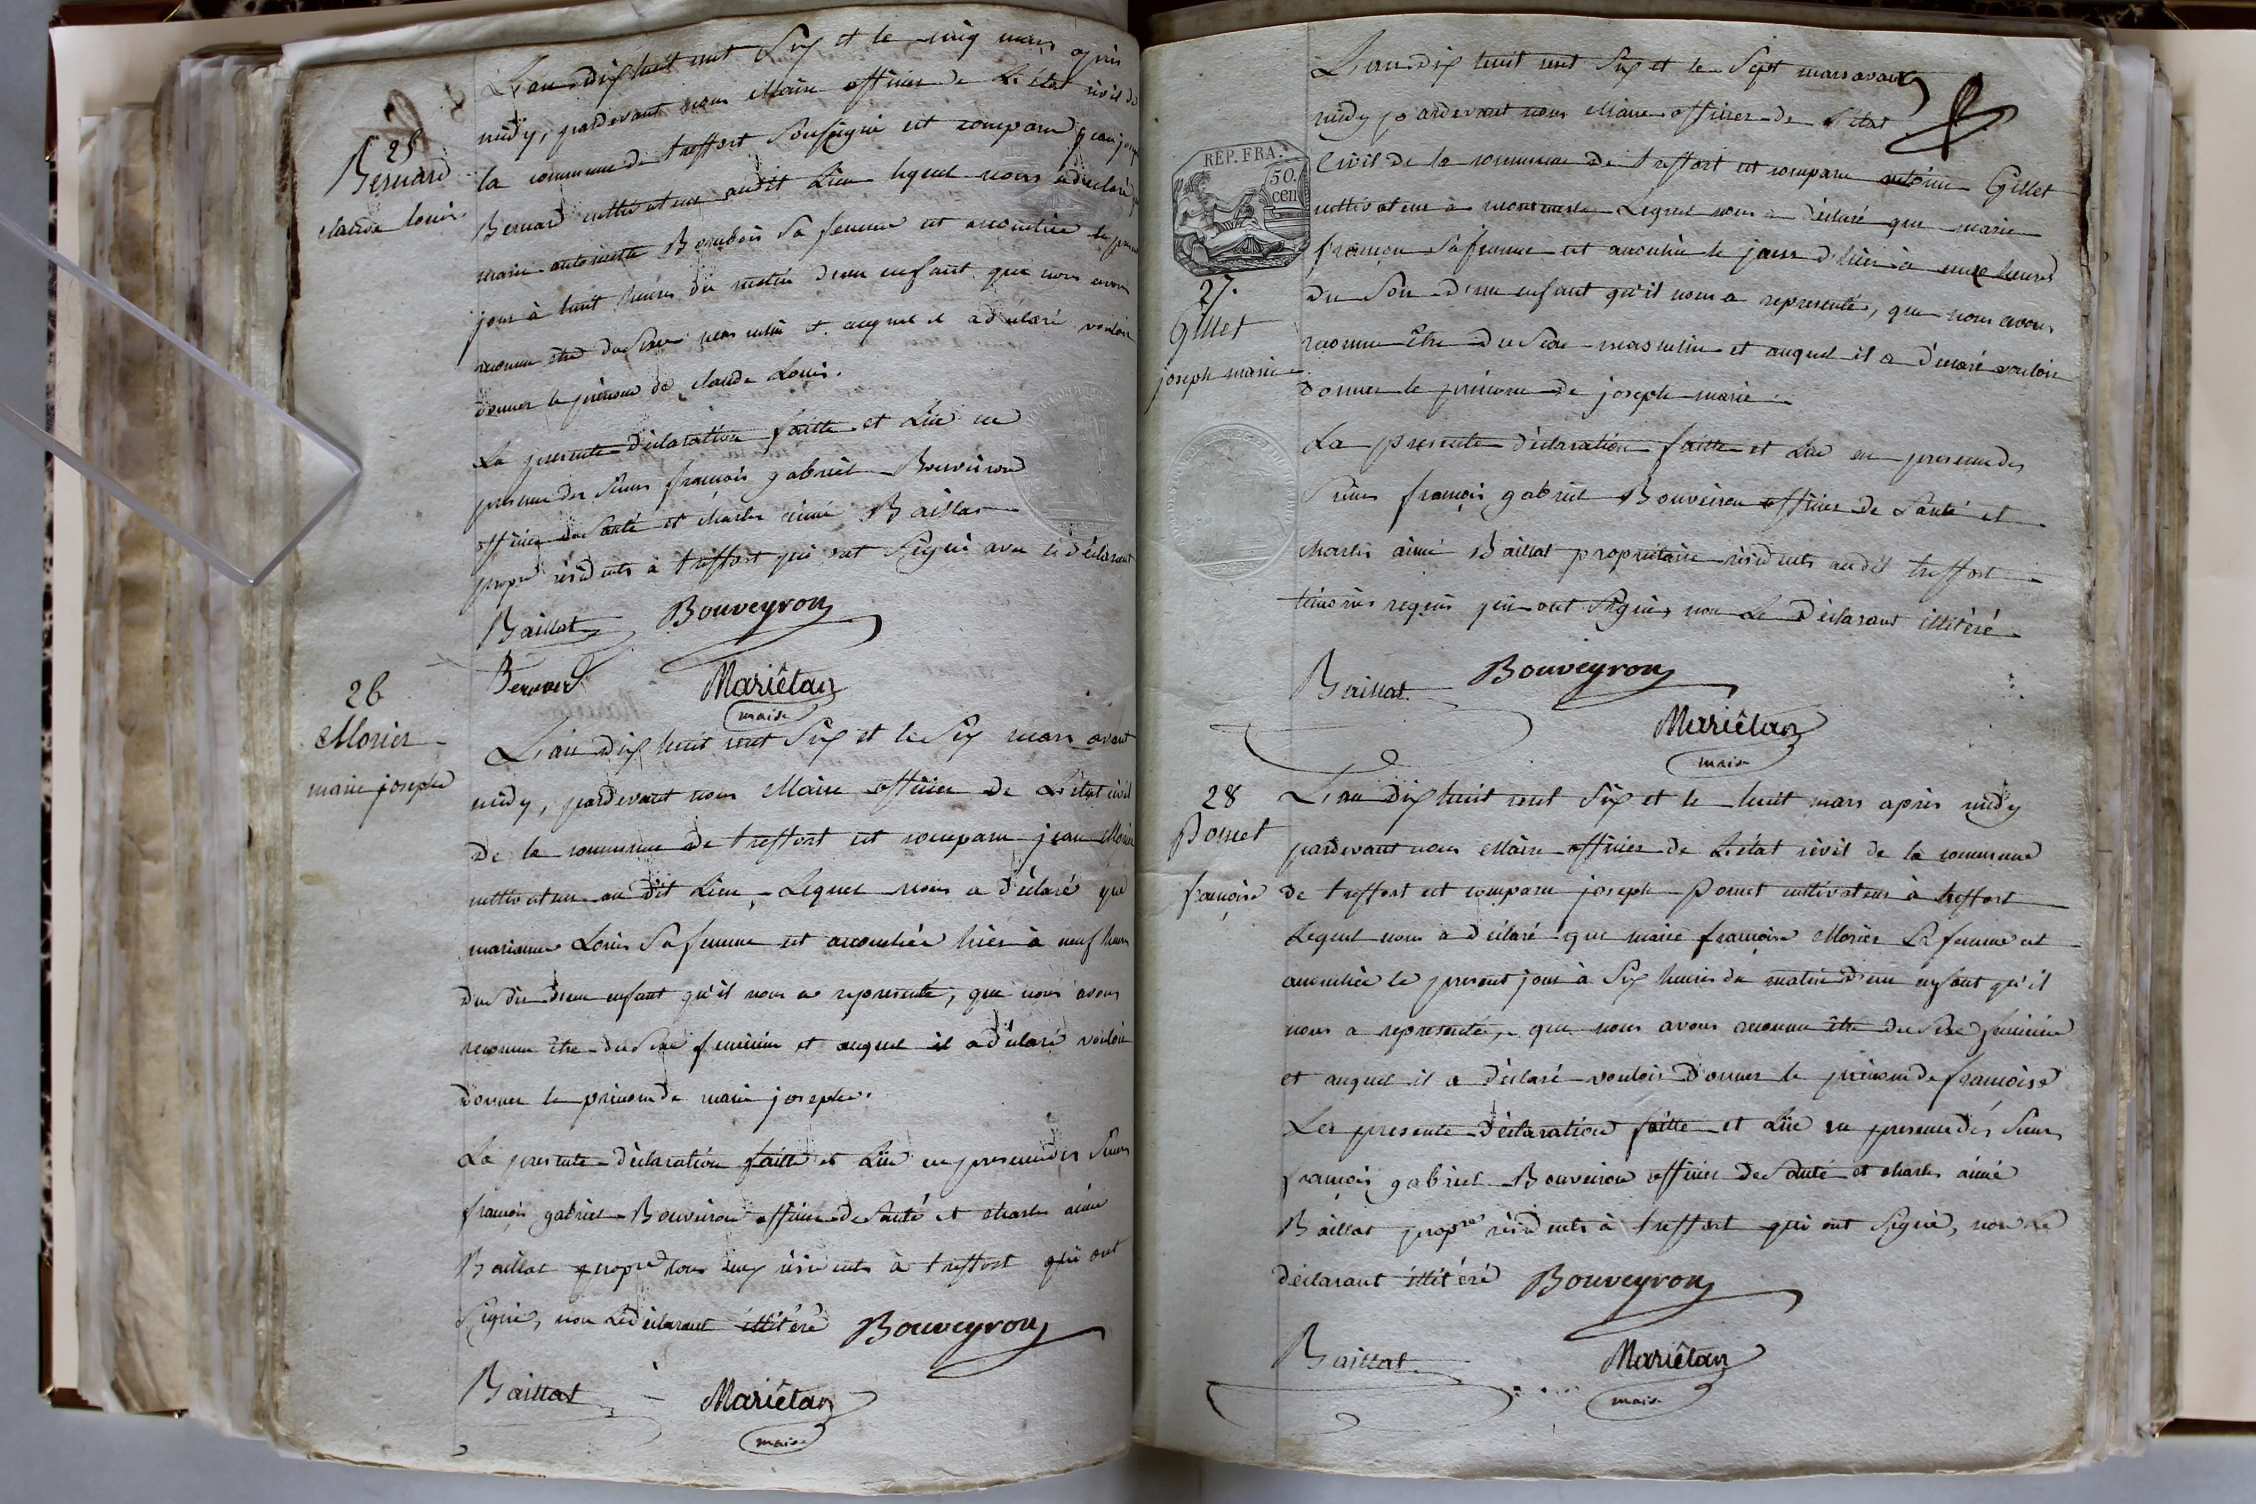 25
Bernard
claude louis
L'an dix huit cent Six et le cinq mars après
midy, pardevant nous Maire officier de L'état civil de
la commune de treffort Soussigné est comparu jean
Bernard cultivateur audit Lieu lequel nous a déclaré
marie antoinette Sa femme est accouchée le present
jour à huit heures du matin d'un enfant que nous avons
reconnu être du Sexe masculin et auquel il a déclaré vouloir
donner le prénom de claude Louis.
La presente déclaration faitte et Lüe en
presence des Sieurs françois gabriel Bouveiron
officier de Santé et charles aimé Baillat
propre résidents à treffort qui ont Signé avec le déclarant
Baillat Bouveyron
Bernard Mariêtan
maire
26
Morier
marie joseph
L'an dix huit cent Six et le Six mars avant
midy, pardevant nous Maire officier de L'état civil
de la commune de treffort est comparu jean Morier
cultivateur au dit Lieu, Lequel nous a déclaré que
marianne Louis Sa femme est accouchée hier à neuf heures
du d'un enfant qu'il nous a representé, que nous avons
reconnu être du Sexe feminin et auquel il a déclaré vouloir
donner le prénom de marie joseph.
La presente déclaration faitte et Lüe en presence des Sieurs
françois gabriel Bouveiron officier de Santé et charles aimé
Baillat propre tous deux résidents à treffort qui ont
Signé, non Le déclarant illitéré Bouveyron
Baillat Mariêtan
maire
REP. FRA.
50.
cen
27.
Gillet
joseph marie
L'an dix huit cent Six et le Sept mars avant
midy pardevant nous Maire officier de L'état
Civil de la commune de treffort est comparu Gillet
cultivateur à Lequel nous a déclaré que marie
françon Sa femme est accouchée le jour d'hier à onze heures
du Soir d'un enfant qu'il nous a representé, que nous avons
reconnu être du Sexe masculin et auquel il a déclaré vouloir
donner le prénom de joseph marie.
La presente déclaration faitte et Lüe en presence des
Sieurs françois gabriel Bouveiron officier de Santé et
charles aimé Baillat propriétaire résidents audit treffort
témoins requis qui ont Signé, non Le déclarant illitéré
Baillat Bouveyron
Mariêtan
maire
28
Pomet
françoise
L'an dix huit cent Six et le huit mars après midy
pardevant nous Maire officier de L'état civil de la commune
de treffort est comparu joseph Pomet cultivateur à treffort
Lequel nous a déclaré que marie françoise Morier Sa femme est
accouchée le present jour à Six heures du matin d'un enfant qu'il
nous a representé, que nous avons reconnu être du Sexe feminin
et auquel il a déclaré vouloir donner le prénom de françoise
La presente déclaration faitte et Lüe en presence des Sieurs
françois gabriel Bouveiron officier de Santé et charles aimé
Baillat propre résidents à treffort qui ont Signé, non Le
déclarant illitéré Bouveyron
Baillat Mariêtan
maire